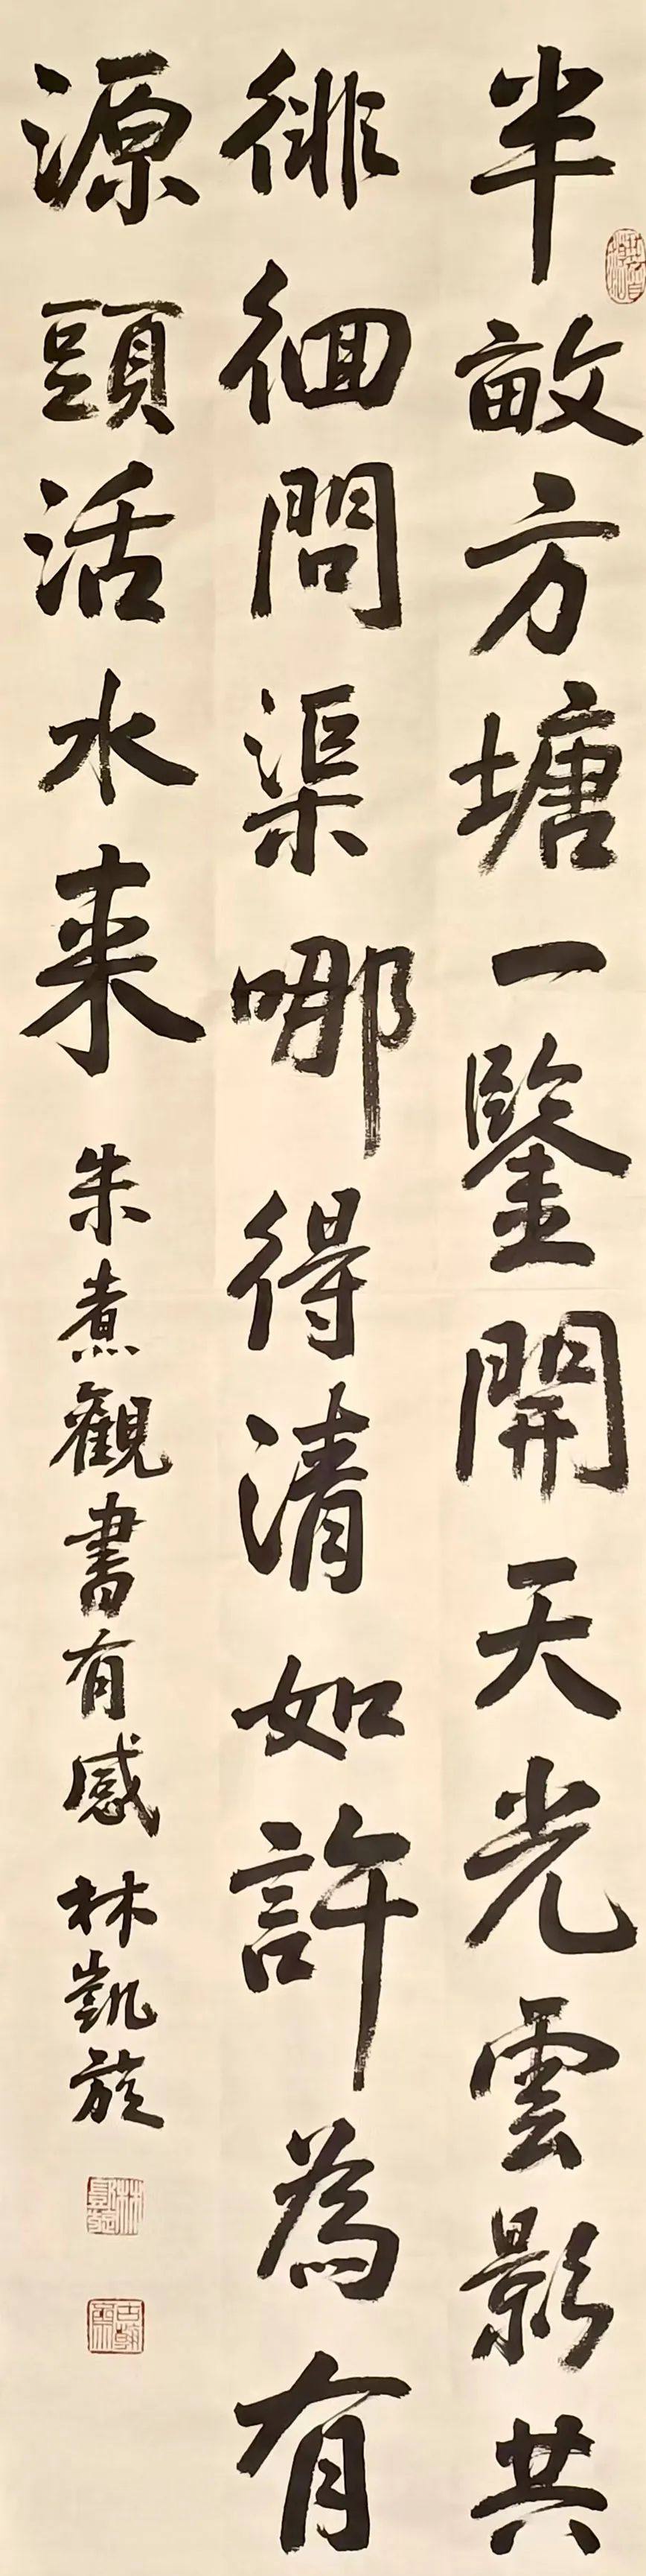 半畝方塘一鑒開天光雲影共
徘徊問渠哪得清如許為有
源頭活水来
朱熹觀書有感
林凱旋